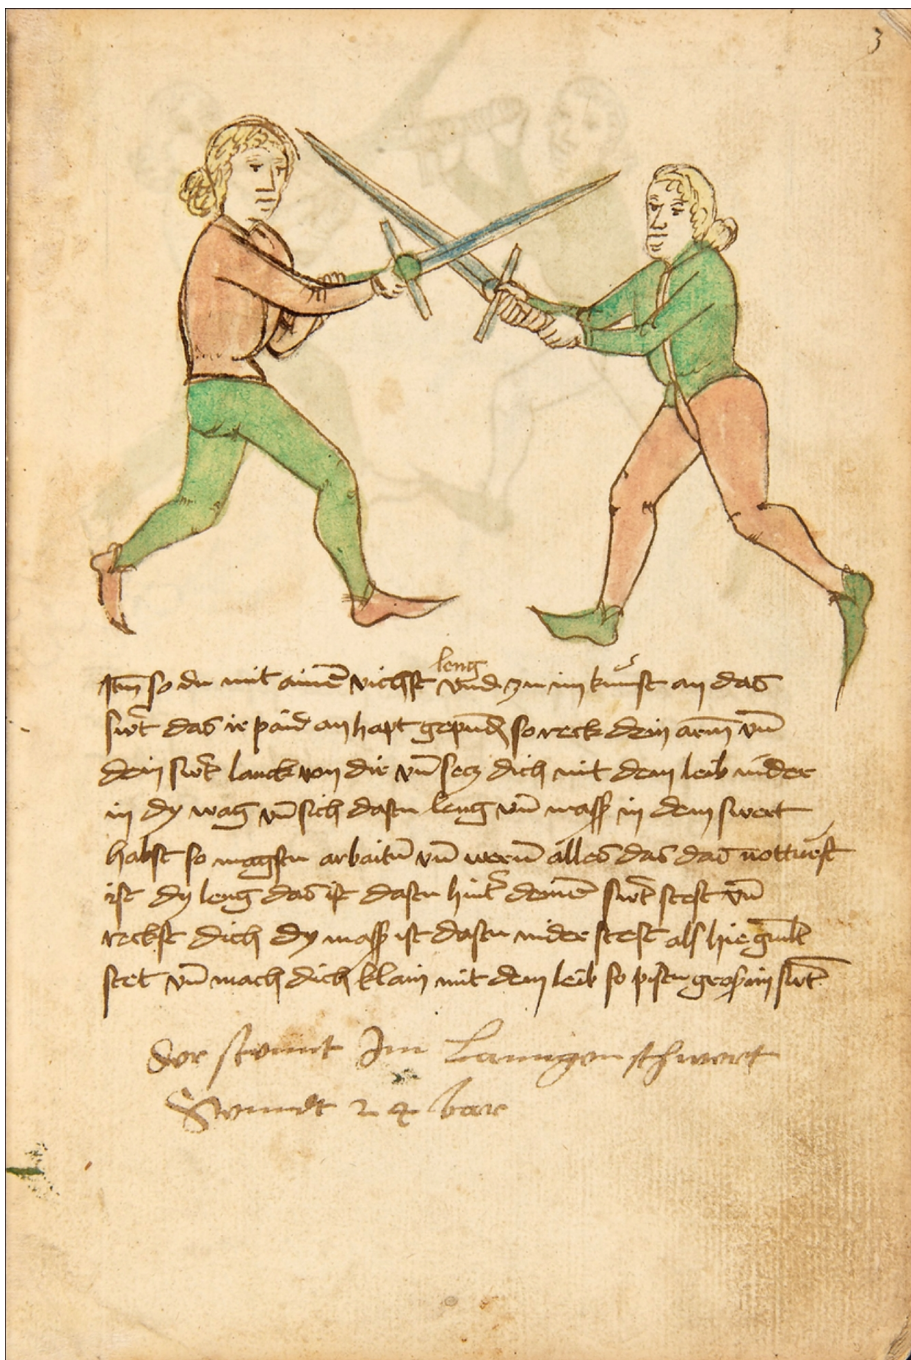 3
leng
Itm̄ so du mit ainē vichst vnd zu im kumst an das
swt̄ das ir paid an hapt gepundn̄ so reck dein arm̄ vn̄
dein swt̄ lanck von dir vn̄ secz dich mit dem leib nider
in dy wag vn̄ sich dastu leng vn̄ mass in dem swert
habst so magstu arbaitn̄ vn̄ wern̄ alles das das nottürft
ist dy leng das ist dastu hintr̄ deinē swt̄ stest vn̄
reckst dich dy mass ist dastu nider stest als hie gmalt
stet vn̄ mach dich klain mit dem leib so pistu gros im swt̄
der stunnt Im Lanngen schwert
Seundt 24 bar